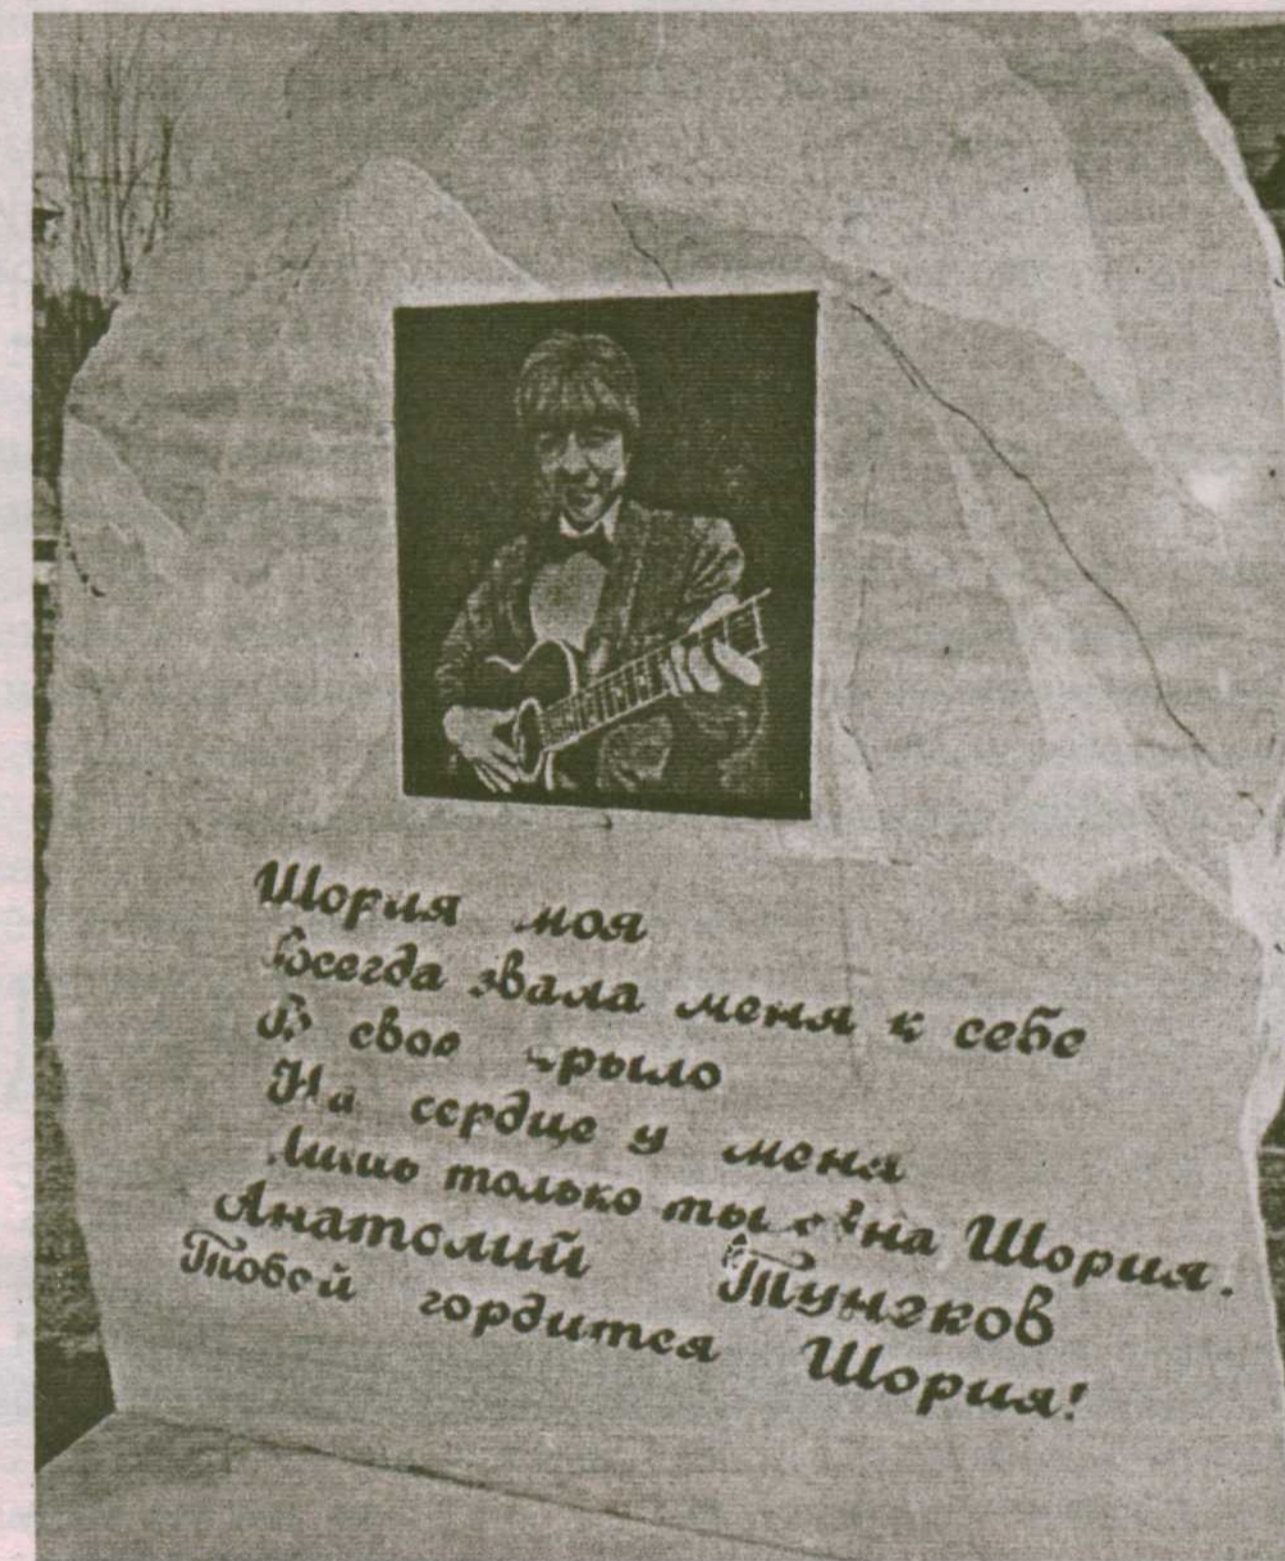 Шория моя
Всегда звала меня к себе
В свое крыло
На сердце у меня
Лишь только ты одна Шория.
Анатолий Тунеков
Тобой гордится Шория!